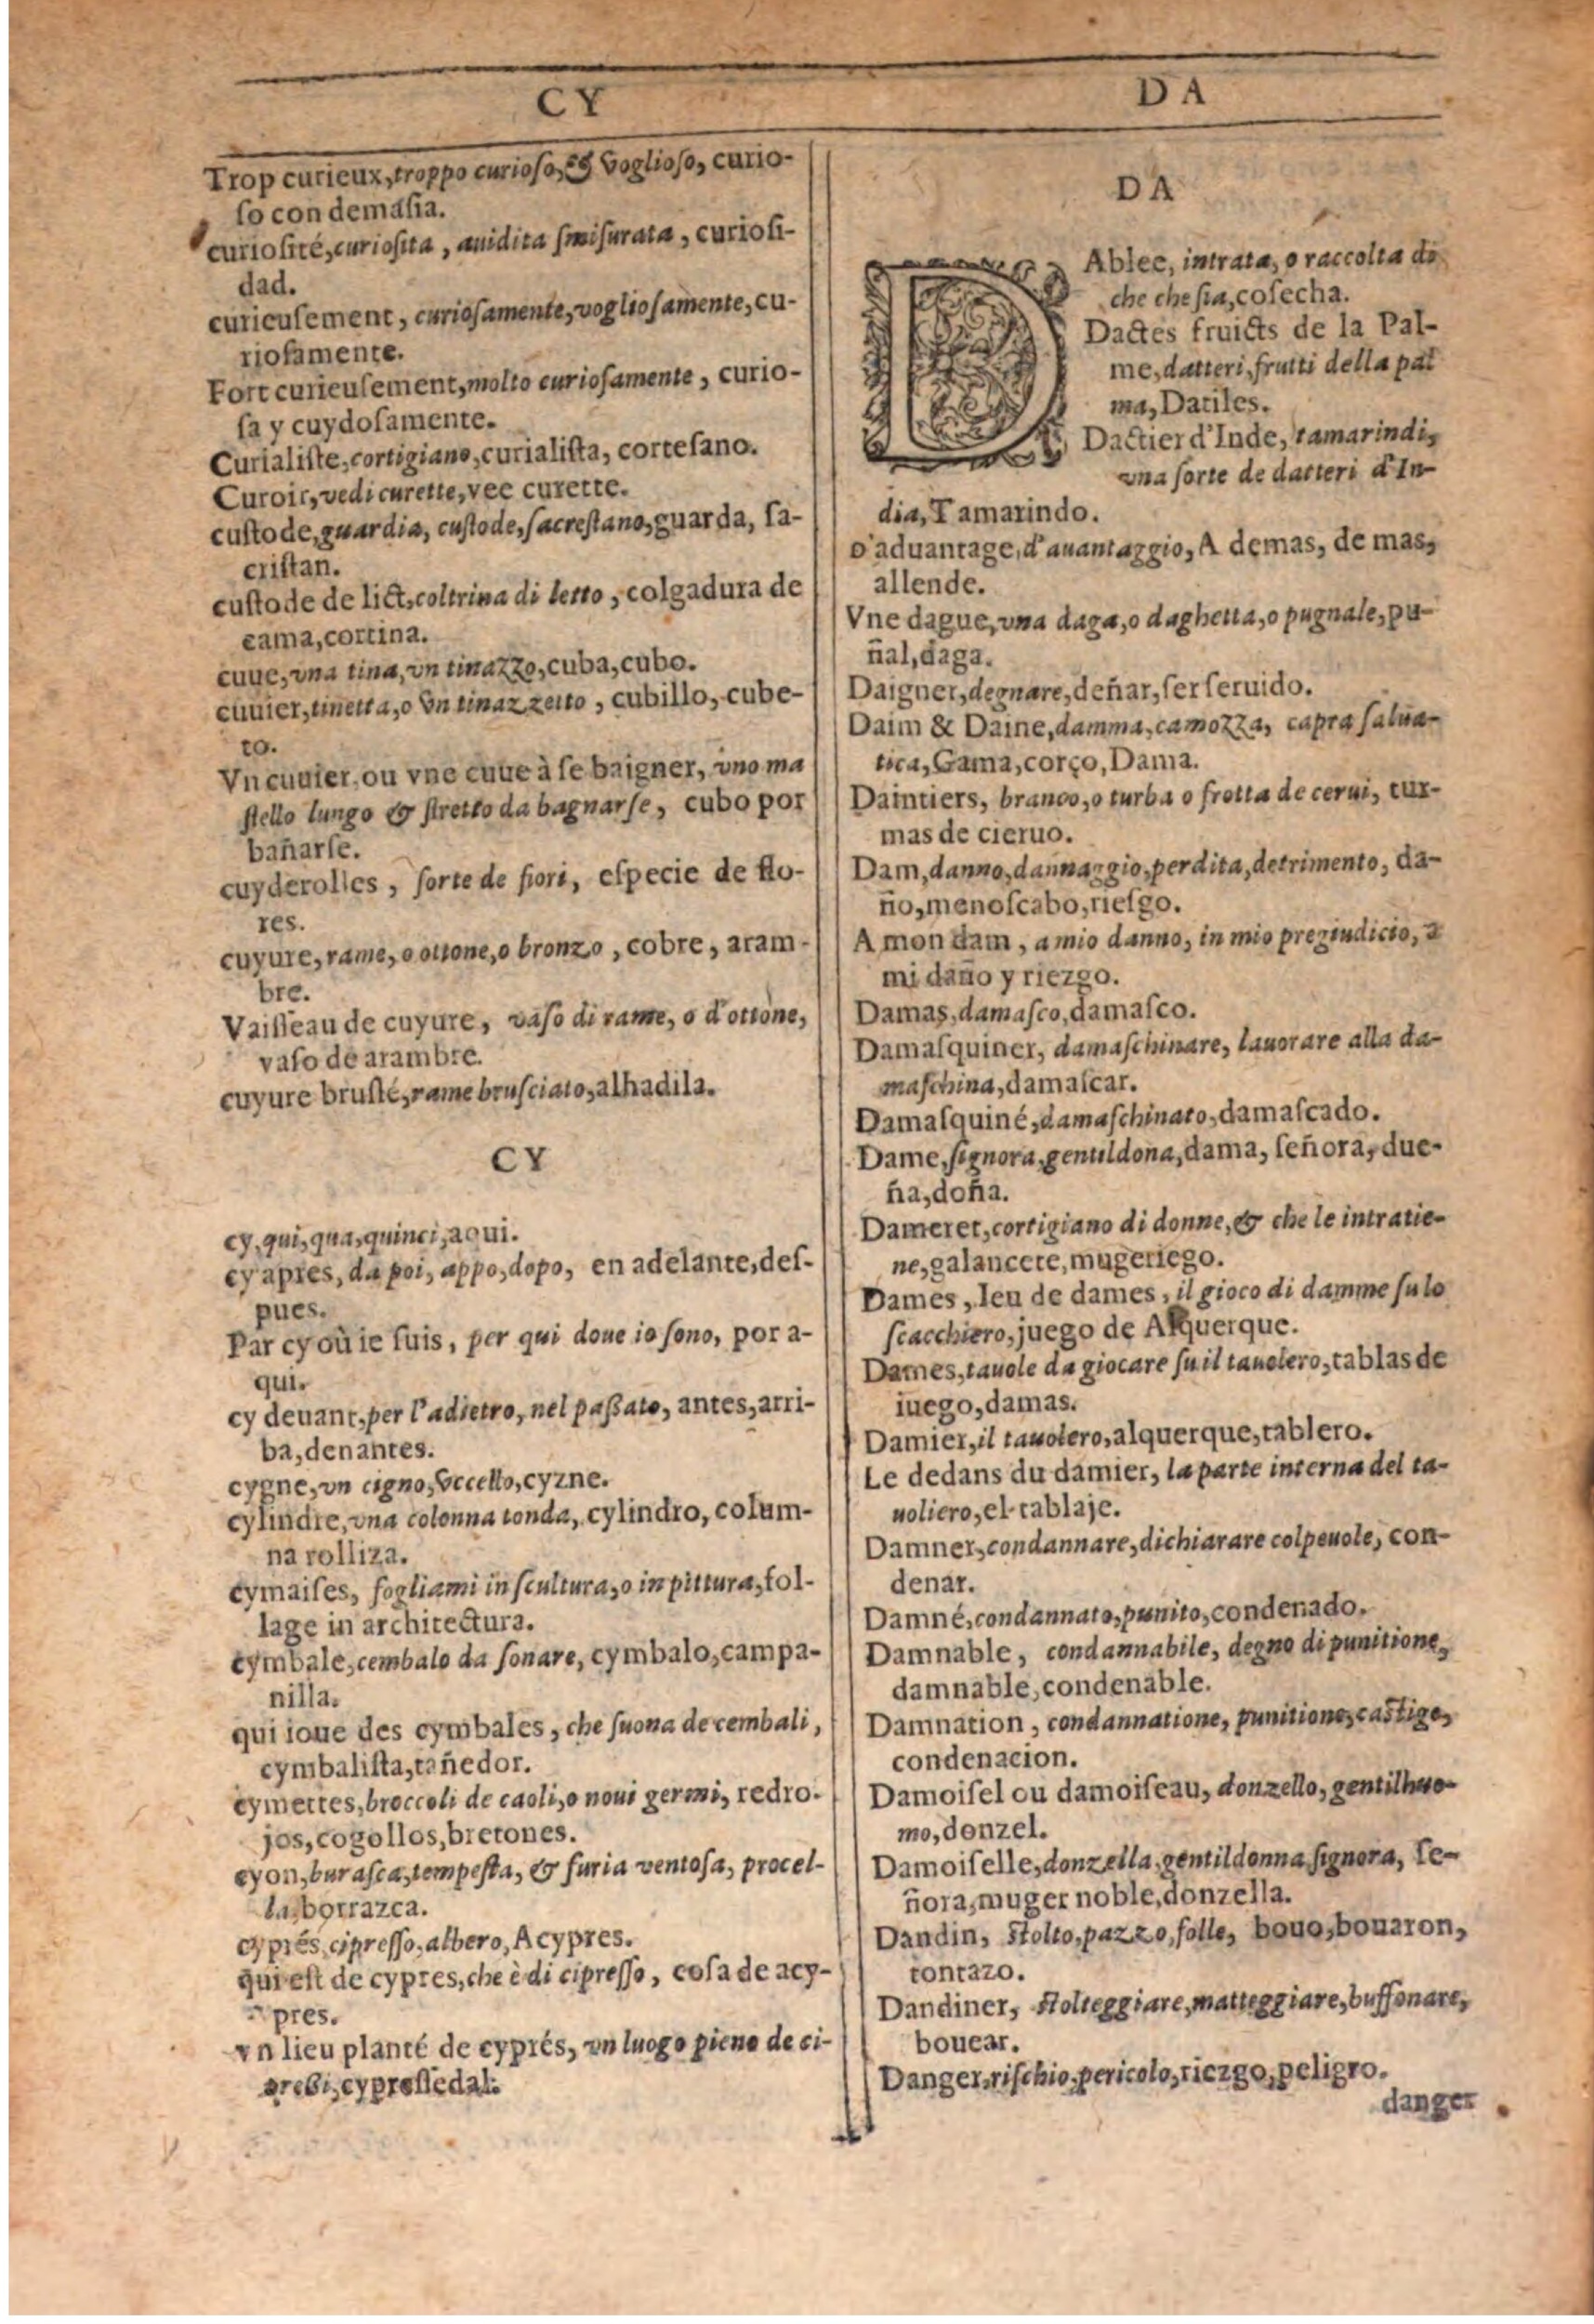 CY
Trop curieux, troppo curioſo, & voglioſo, curio-
ſo con demaſia.
curioſité, curioſita, auidita ſmiſurata, curioſi-
dad.
curieuſement, curioſamente, voglioſamente, cu-
rioſamente.
Fort curieuſement, molto curioſamente, curio-
ſa y cuydoſamente.
Curialiſte, cortigiano, curialiſta, corteſano.
Curoir, vedi curette, vee curette.
cuſtode, guardia, cuſtode, ſacreſtano, guarda, ſa-
criſtan.
cuſtode de lict, coltrina di letto, colgadura de
cama, cortina.
cuue, vna tina, vn tinazzo, cuba, cubo.
cuuier, tinetta, o vn tinazzetto, cubillo, cube-
to.
Vn cuuier, ou vne cuue à ſe baigner, vno ma
ſtello lungo & ſtretto da bagnarſe, cubo por
bañarſe.
cuyderolles, ſorte de fiori, eſpecie de flo-
res.
cuyure, rame, o ottone, o bronzo, cobre, aram-
bre.
Vaiſſeau de cuyure, vaſo di rame, o d'ottone,
vaſo de arambre.
cuyure bruſlé, rame bruſciato, alhadila.
CY
cy, qui, qua, quinci, aqui.
cy apres, da poi, appo, dopo, en adelante, deſ-
pues.
Par cy où ie ſuis, per qui doue io ſono, por a-
qui.
cy deuant, per l'adietro, nel paßato, antes, arri-
ba, denantes.
cygne, vn cigno, vccello, cyzne.
cylindre, vna colonna tonda, cylindro, colum-
na rolliza.
cymaiſes, fogliami in ſcultura, o in pittura, fol-
lage in architectura.
cymbale, cembalo da ſonare, cymbalo, campa-
nilla.
qui ioue des cymbales, che ſuona de cembali,
cymbaliſta, tañedor.
cymettes, broccoli de caoli, o noui germi, redro-
jos, cogollos, bretones.
cyon, buraſca, tempeſta, & furia ventoſa, procel-
la, borrazca.
cyprés, cipreſſo, albero, Acypres.
qui eſt de cypres, che è di cipreſſo, coſa de acy-
pres.
vn lieu planté de cyprés, vn luogo pieno de ci-
preßi, cypreſſedal.
DA
DA
DAblee, intrata, o raccolta di
che che ſia, coſecha.
Dactes fruicts de la Pal-
me, datteri, frutti della pal
ma, Datiles.
Dactier d'Inde, tamarindi,
vna ſorte de datteri d'In-
dia, Tamarindo.
D'aduantage, d'auantaggio, A demas, de mas,
allende.
Vne dague, vna daga, o daghetta, o pugnale, pu-
ñal, daga.
Daigner, degnare, deñar, ſer ſeruido.
Daim & Daine, damma, camozza, capra ſalua-
tica, Gama, corço, Dama.
Daintiers, branco, o turba o frotta de cerui, tur-
mas de cieruo.
Dam, danno, dannaggio, perdita, detrimento, da-
ño, menoſcabo, rieſgo.
A mon dam, a mio danno, in mio pregiudicio, a
mi daño y riezgo.
Damas, damaſco, damaſco.
Damaſquiner, damaſchinare, lauorare alla da-
maſchina, damaſcar.
Damaſquiné, damaſchinato, damaſcado.
Dame, ſignora, gentildona, dama, ſeñora, due-
ña, doña.
Dameret, cortigiano di donne, & che le intratie-
ne, galancete, mugeriego.
Dames, Ieu de dames, il gioco di damme ſu lo
ſcacchiero, juego de Alquerque.
Dames, tauole da giocare ſu il tauolero, tablas de
iuego, damas.
Damier, il tauolero, alquerque, tablero.
Le dedans du damier, la parte interna del ta-
uoliero, el tablaje.
Damner, condannare, dichiarare colpeuole, con-
denar.
Damné, condannato, punito, condenado.
Damnable, condannabile, degno di punitione,
damnable, condenable.
Damnation, condannatione, punitione, caſtigo,
condenacion.
Damoiſel ou damoiſeau, donzello, gentilhuo-
mo, donzel.
Damoiſelle, donzella, gentildonna, ſignora, ſe-
ñora, muger noble, donzella.
Dandin, ſtolto, pazzo, folle, bouo, bouaron,
tontazo.
Dandiner, ſtolteggiare, matteggiare, buffonare,
bouear.
Danger, riſchio, pericolo, riezgo, peligro.
danger